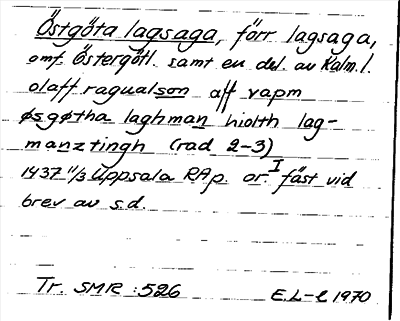 Östgöta lagsaga, förr lagsaga,
omf. Östergötl. samt en del. av Kalm. l.
olaff ragualson aff vapm
øsgøtha laghman hiolth lag-
manztingh (rad 2-3)
1437 11/3 Uppsala RAp. or. I fäst vid
brev av s.d.
Tr. SMR :526
E.L-l 1970